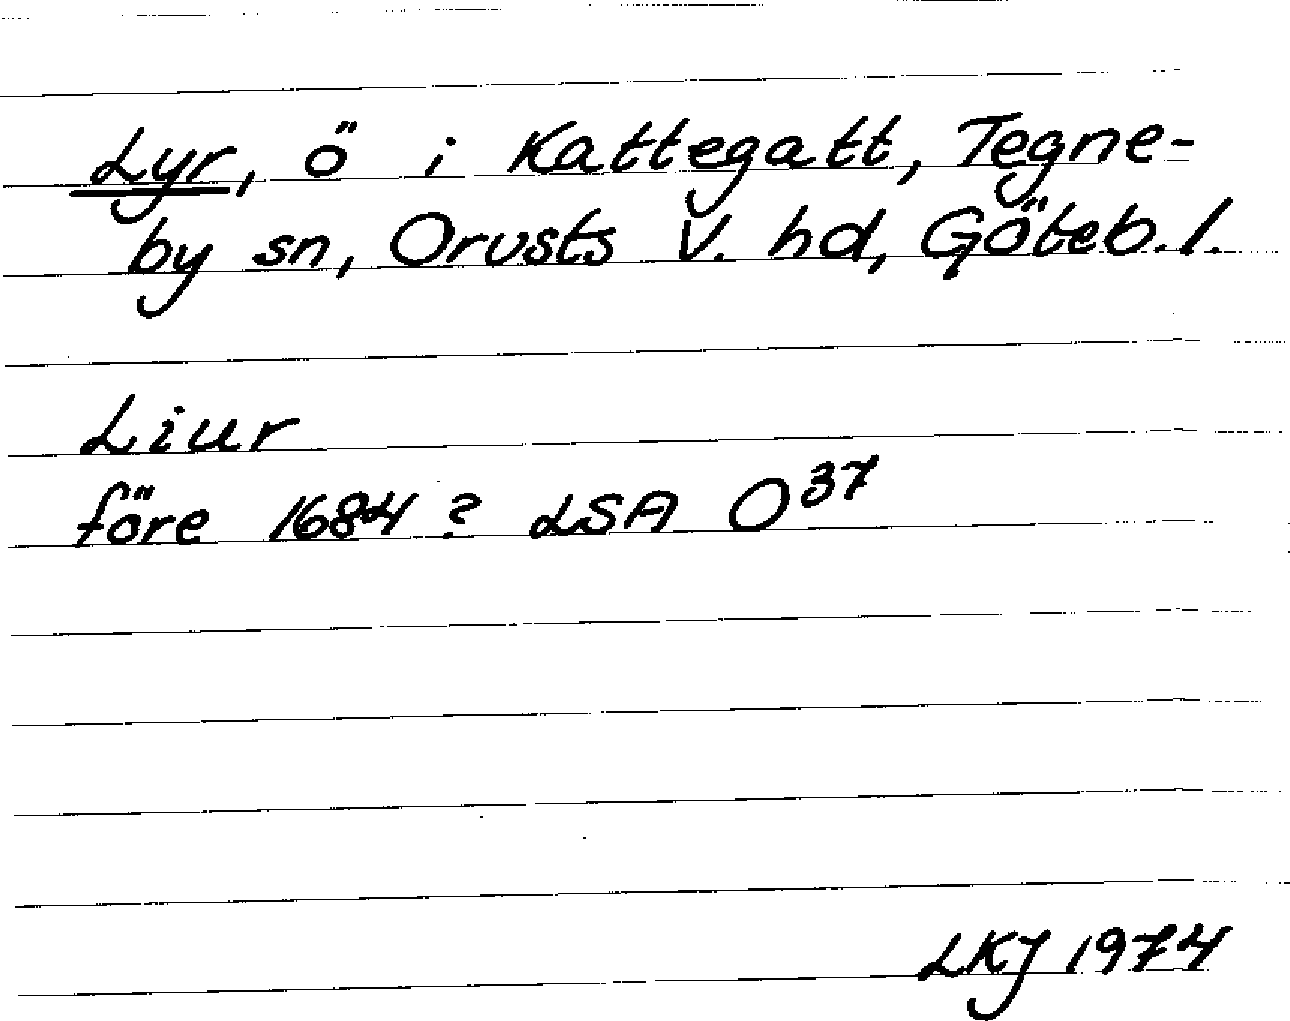 Lyr, ö i Kattegatt, Tegne-
by sn, Orusts V. hd, Göteb. l.
Liur
före 1684? LSA O37
LKJ 1974